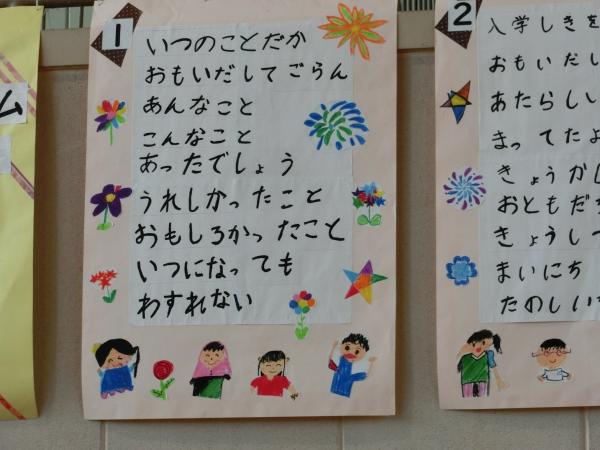 ム
1
いつのことだか
おもいだしてごらん
あんなこと
こんなこと
あったでしょう
うれしかったこと
おもしろかったこと
いつになっても
わすれない
2
入学しきを
おもいだし
あたらしい
まってたよ
きょうか
おともだち
きょうしつ
まいにち
たのしい